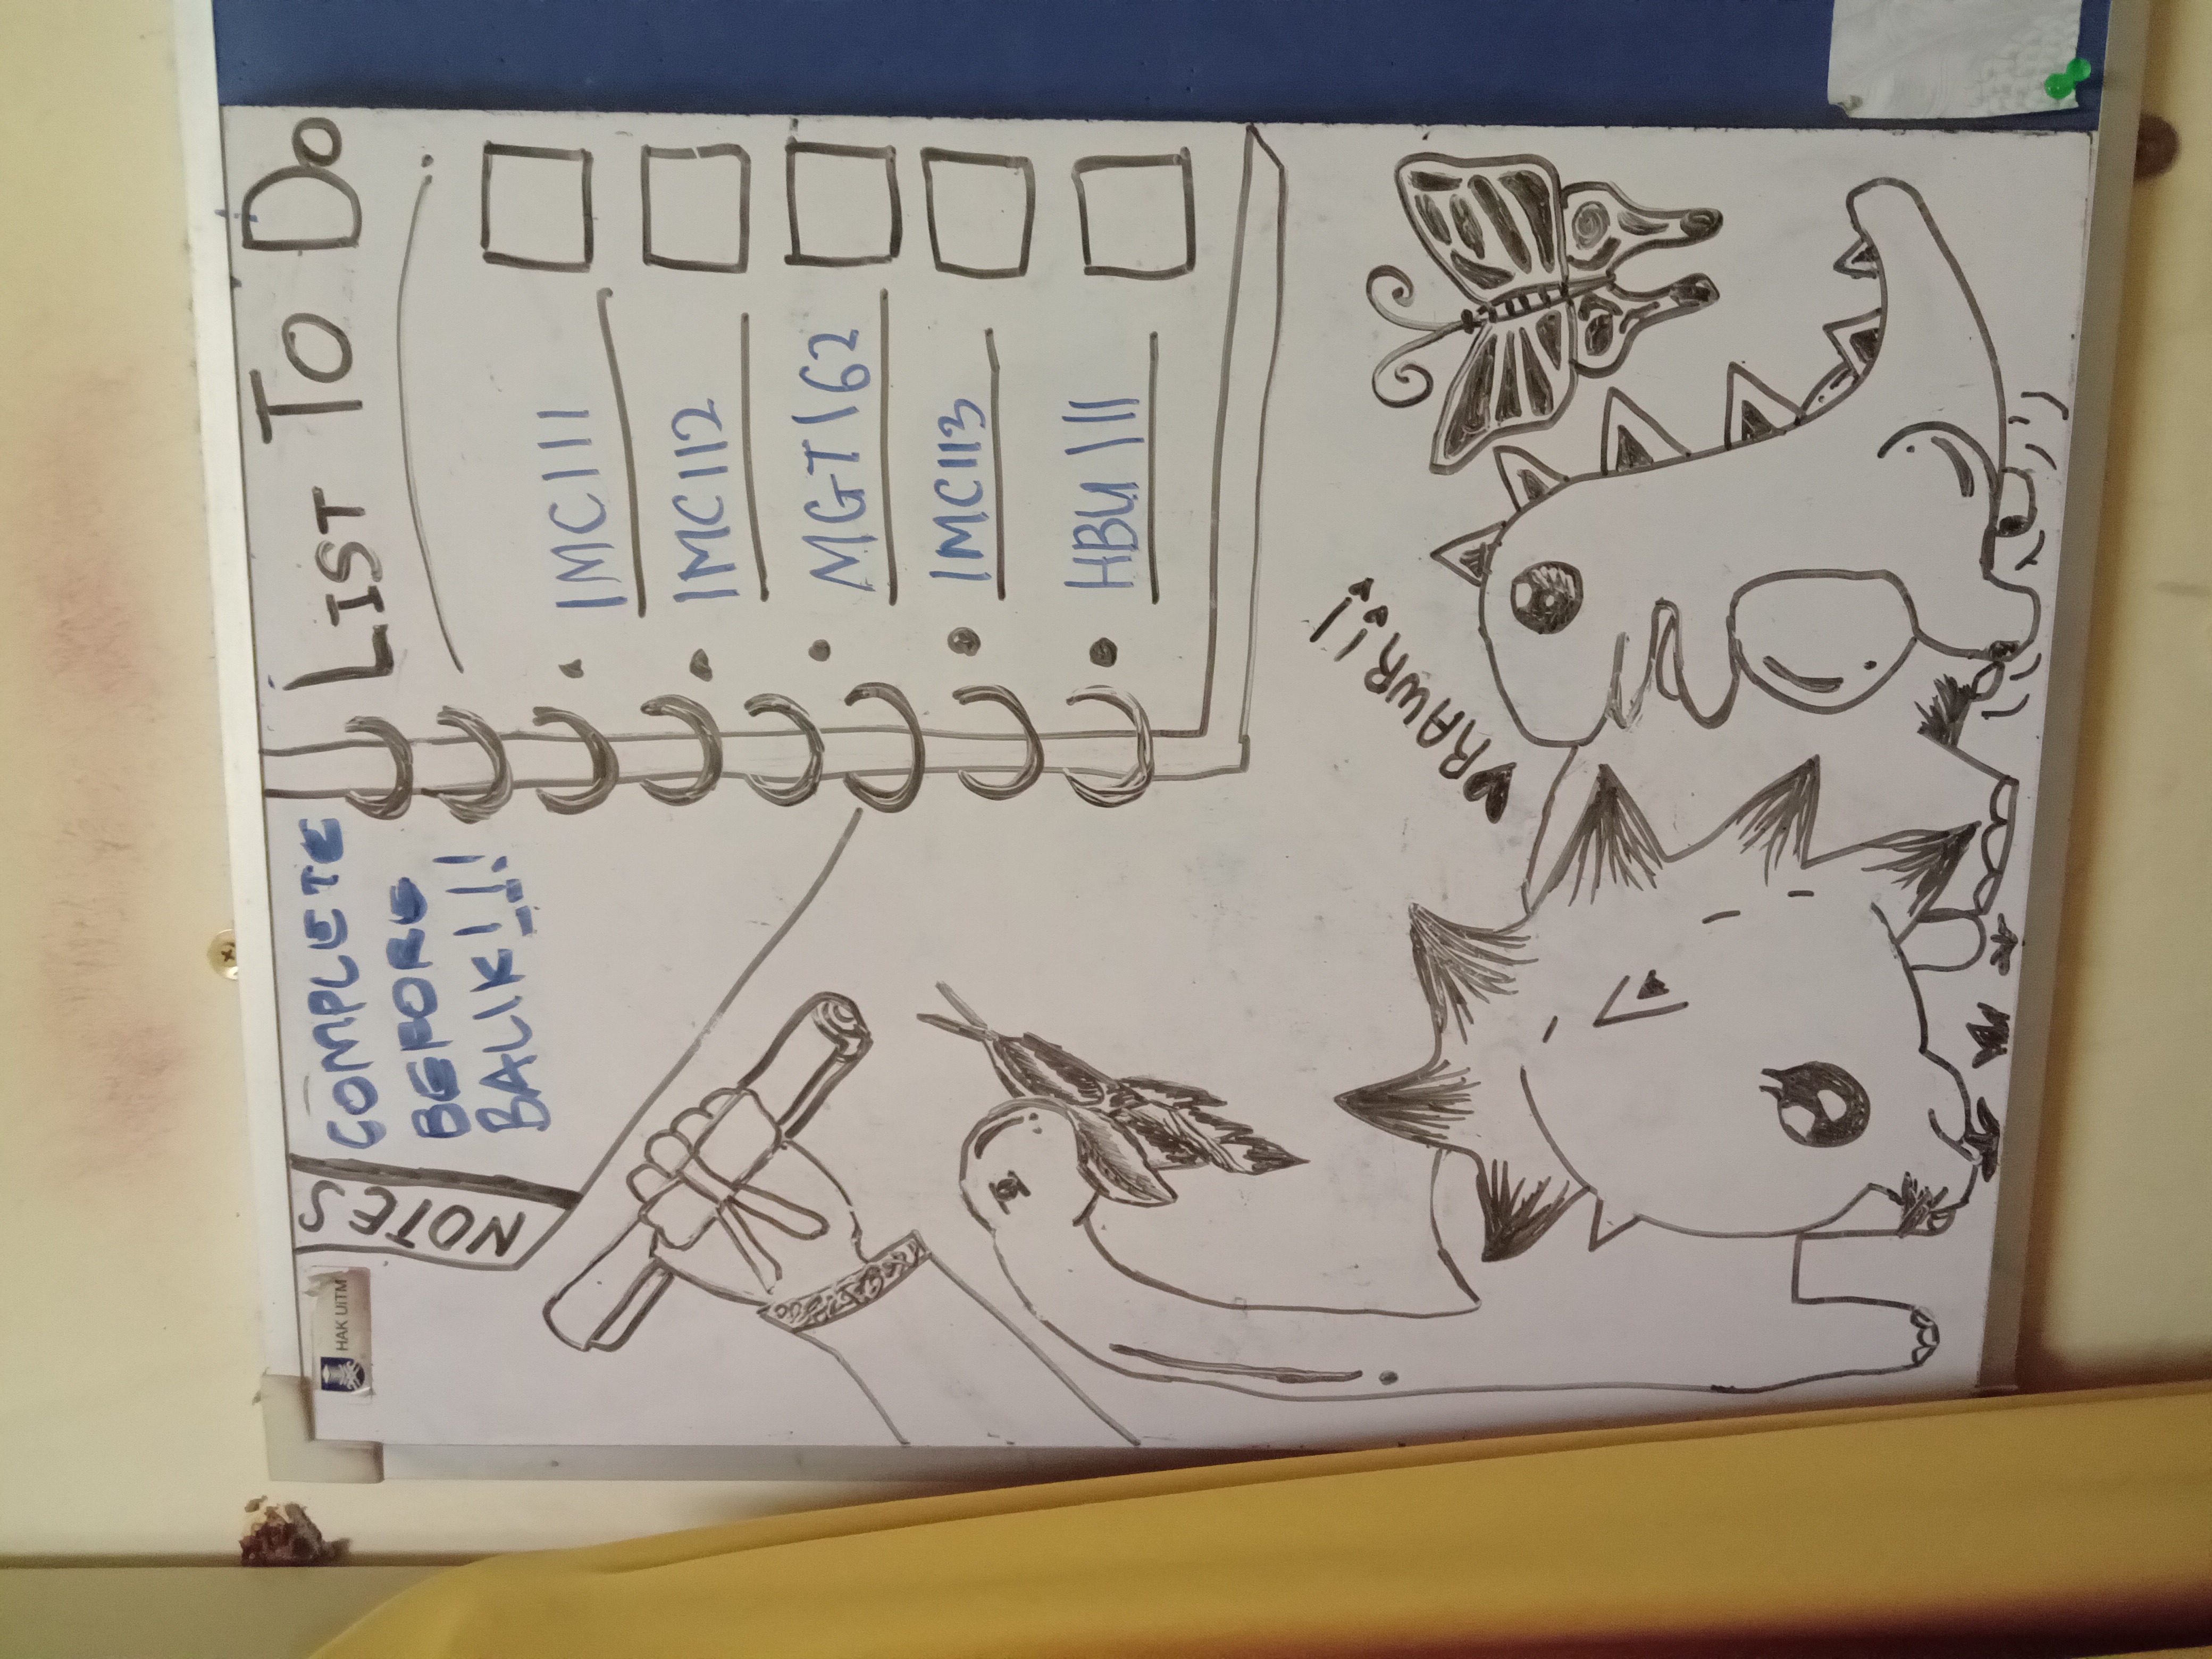 HAK UiTM
NOTES
COMPLETE
BEFORE
BALIK!!!
LIST TO DO
IMC111
IMC112
MGT162
IMC113
HBU111
RAWR!!